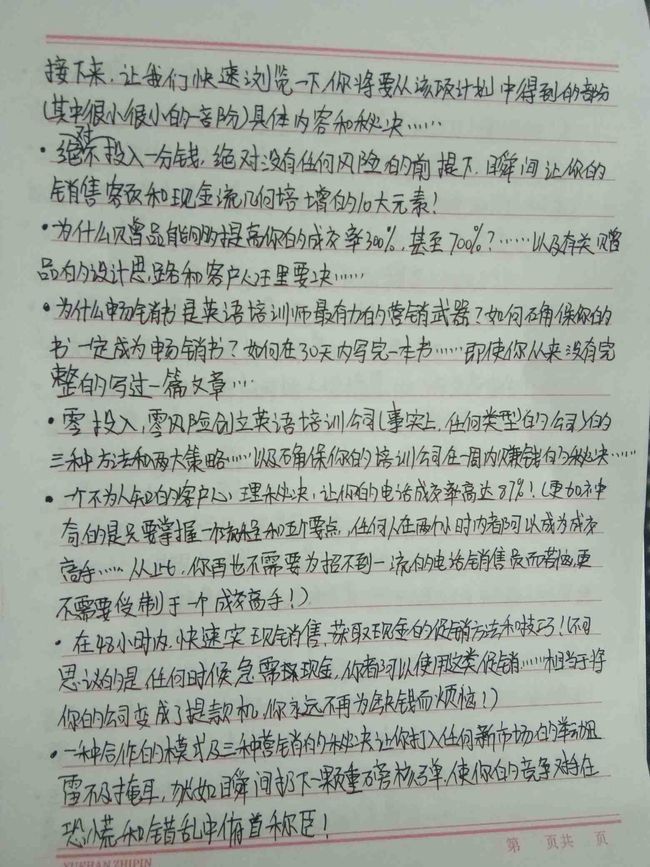 接下来，让我们快速浏览一下，你将要从该项计划中得到的部分
（其中很小很小的一部份）具体内容和秘决……
·绝对不投入一分钱，绝对没有任何风险的前提下，瞬间让你的
销售额和现金流几何培增的10大元素！
·为什么贝曾品能够提高你的成交率300%，甚至700%？……以及有关贝曾
品的设计思路和客户心里要决……
·为什么畅销书是英语培训师最有力的营销武器？如何确保你的
书一定成为畅销书？如何在30天内写完一本书……即使你从来没有完
整的写过一篇文章…
·零投入，零风险创立英语培训公司（事实上，任何类型的公司）的
三种方法和两大策略……以及确保你的培训公司在一周内赚钱的秘决……
·一个不为人知的客户心理秘决，让你的电话成交率高达87%！（更加神
奇的是只要掌握一个流程和五个要点，任何人在两个小时内都可以成为成交
高手……从此，你再也不需要为招不到一流的电话销售员而苦恼，更
不需要受制于一个成交高手！）
·在48小时内，快速实现销售，获取现金的促销方法和技巧！（不可
思议的是任何时候急需现金，你都可以使用这类促销……相当于将
你的公司变成了提款机，你永远不再为缺钱而烦恼！）
·一种合作的模式及三种营销的秘决让你打入任何新市场的举动迅
雷不及掩耳，犹如瞬间扔下一颗重磅核弹，使你的竞争对手在
恐慌和错乱中俯首称臣！
第 页共 页
YUKUAN ZHIPIN